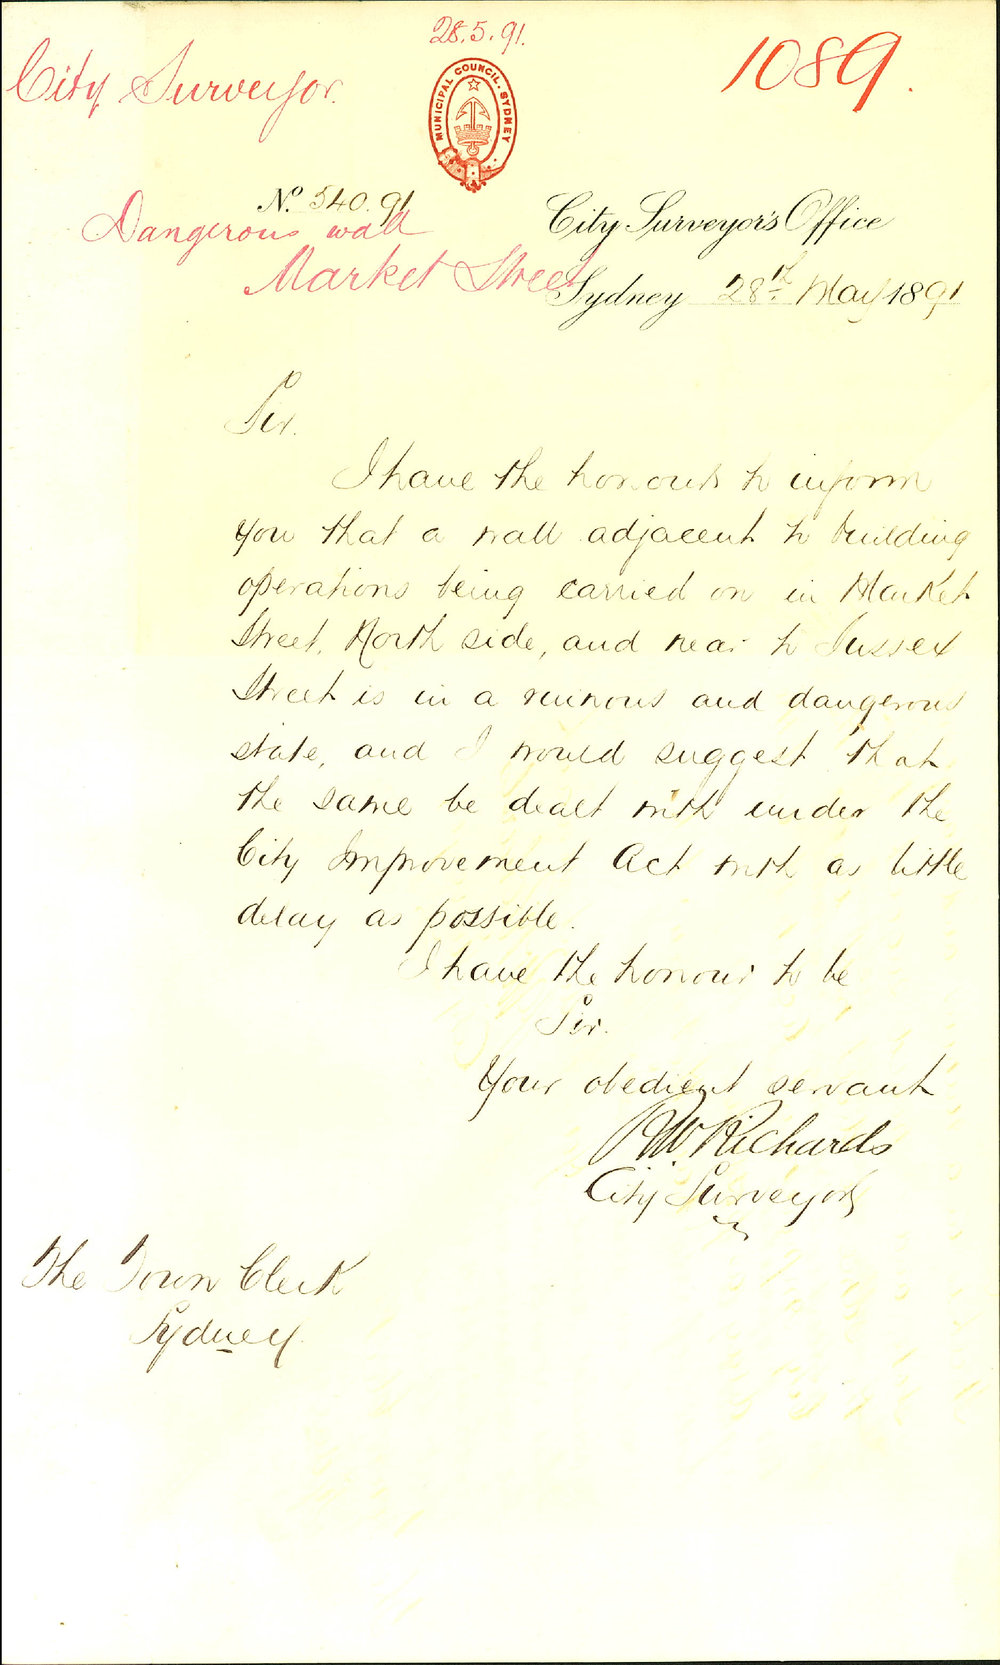 28.5.91.
City Surveyor.
1089.
MUNICIPAL COUNCIL. SYDNEY
No. 540.91
Dangerous wall
Market Street
City Surveyor's Office
Sydney 28th May 1891
Sir.
I have the honour to inform
you that a wall adjacent to building
operations being carried on in Market
Street, North side, and near to Sussex
Street is in a ruinous and dangerous
state, and I would suggest that
the same be dealt with under the
City Improvement Act with as little
delay as possible.
I have the honour to be
Sir.
Your obedient servant
RW. Richards
City Surveyor
The Town Clerk
Sydney